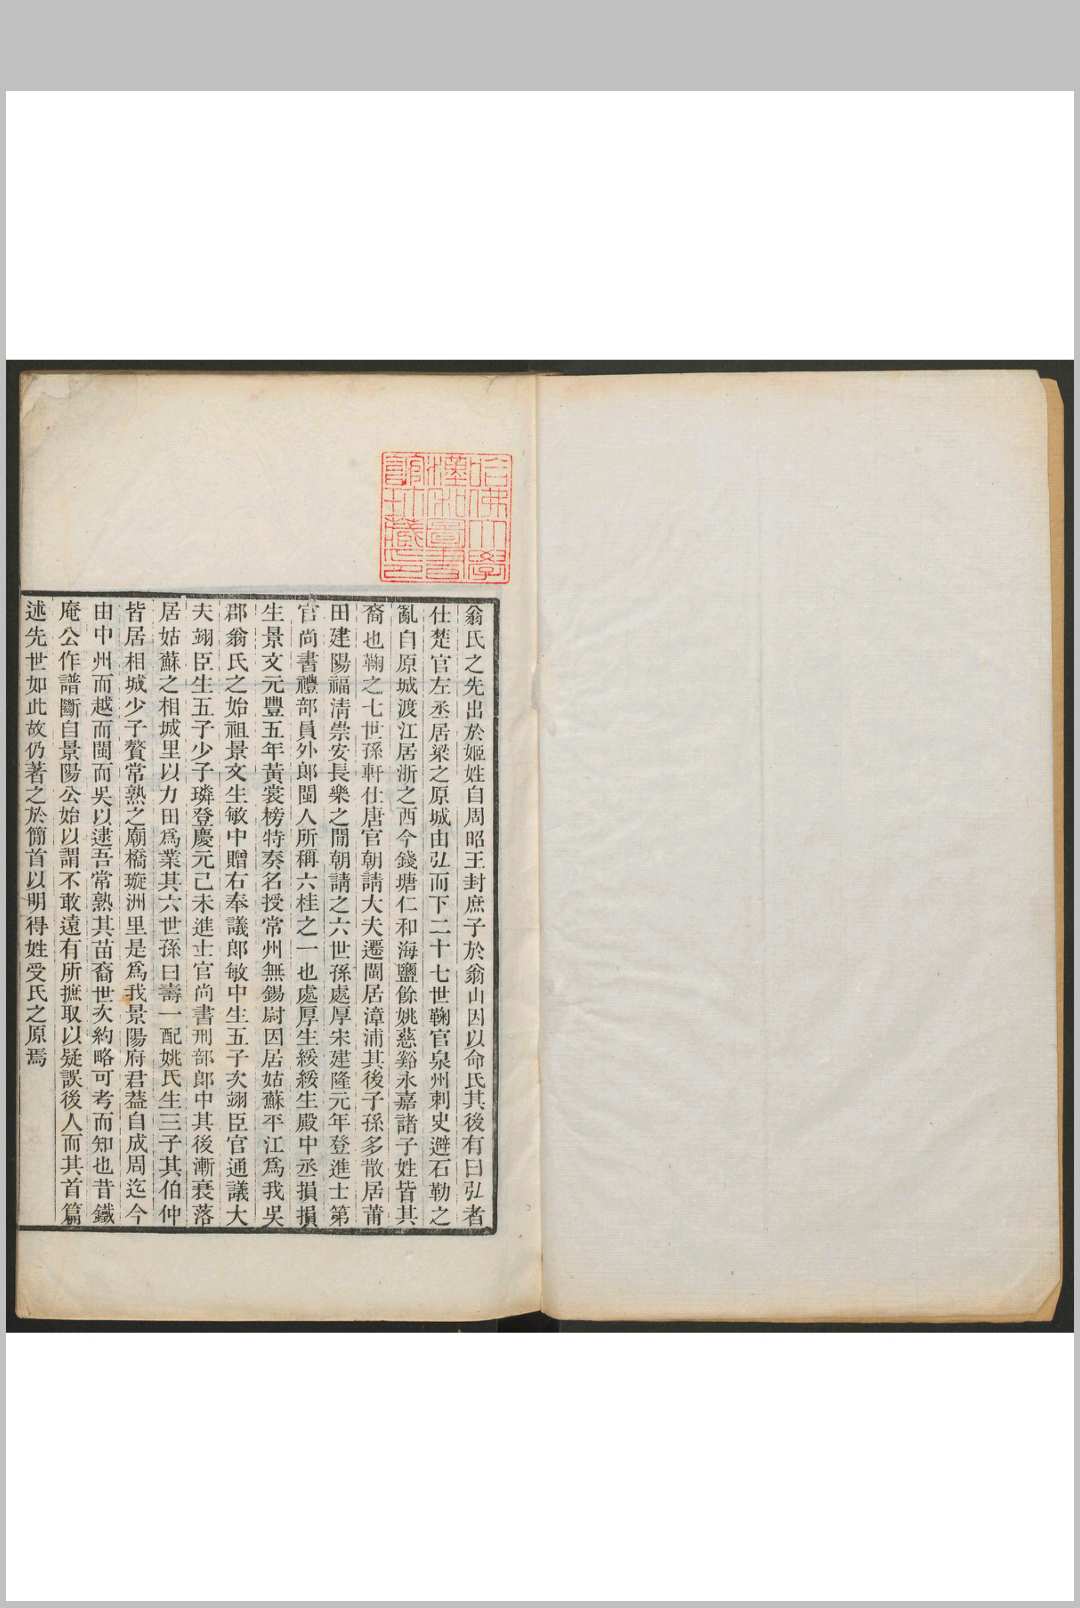 哈佛大學
漢和圖書
館珍藏印
翁氏之先出於姬姓自周昭王封庶子於翁山因以命氏其後有曰弘者
仕楚官左丞居梁之原城由弘而下二十七世鞠官泉州刺史避石勒之
亂自原城渡江居浙之西今錢塘仁和海鹽餘姚慈谿永嘉諸子姓皆其
裔也鞠之七世孫軒仕唐官朝請大夫遷閩居漳浦其後子孫多散居莆
田建陽福清崇安長樂之閒朝請之六世孫處厚宋建隆元年登進士第
官尚書禮部員外郎閩人所稱六桂之一也處厚生綬綬生殿中丞損損
生景文元豐五年黃裳榜特奏名授常州無錫尉因居姑蘇平江為我吳
郡翁氏之始祖景文生敏中贈右奉議郎敏中生五子次翊臣官通議大
夫翊臣生五子少子璘登慶元己未進士官尚書刑部郎中其後漸衰落
居姑蘇之相城里以力田為業其六世孫曰壽一配姚氏生三子其伯仲
皆居相城少子贅常熟之廟橋璇洲里是為我景陽府君葢自成周迄今
由中州而越而閩而吳以逮吾常熟其苗裔世次約略可考而知也昔鐵
庵公作譜斷自景陽公始以謂不敢遠有所摭取以疑誤後人而其首篇
述先世如此故仍著之於簡首以明得姓受氏之原焉